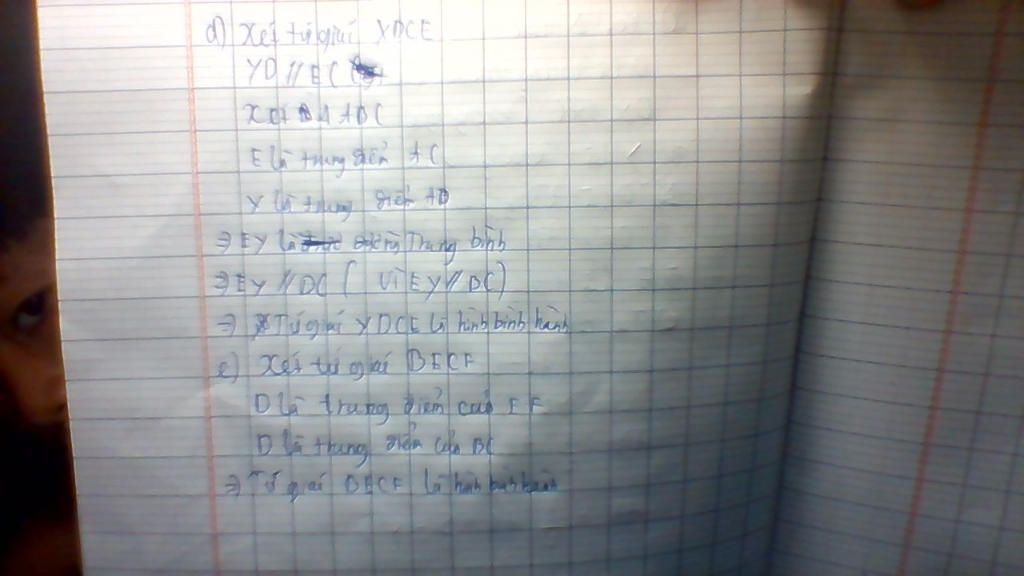 d) Xét tứ giác YDCE
YD // EC
Xét ADC
E là trung điểm AC
Y là trung điểm AD
=> EY là Trung bình
=> EY // DC ( vì EY // DC )
=> Tứ giác YDCE là hình bình hành
e) Xét tứ giác BECF
D là trung điểm của EF
D là trung điểm của BC
=> Tứ giác BECF là hình bình hành